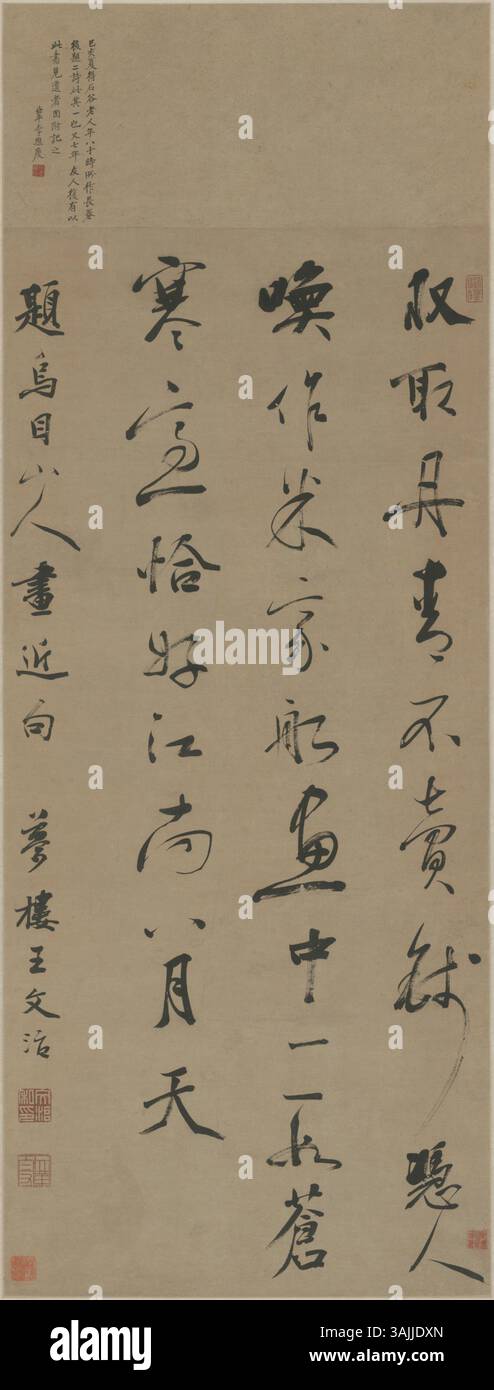 己亥夏得石谷老人年八十時所作長卷
後題二詩此其一也又七年友人復有以
此書見遺者因附記之
北平李恩慶
收取丹青不賣錢憑人
喚作米家船畫中一蒼
寒意恰好江南八月天
題烏目山人畫近句 夢樓王文治
alamy
Image ID: 3AJJDXN
www.alamy.com